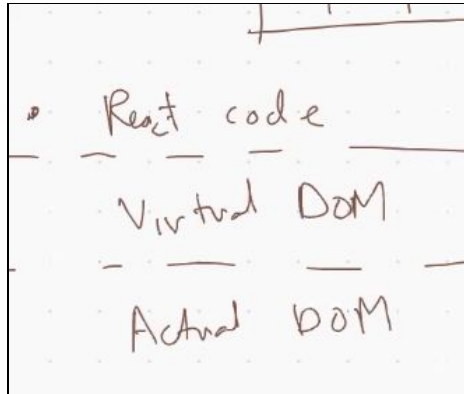 React code
Virtual DOM
Actual DOM